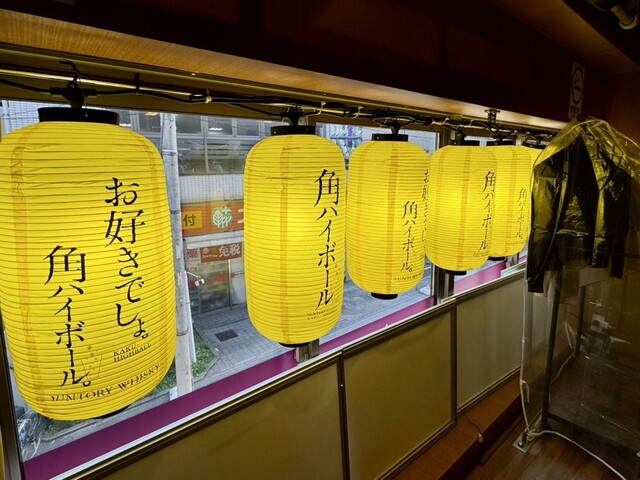 お好きでしょ。
角ハイボール。
KAKU-HIGHBALL
SUNTORY WHISKY
角ハイボール
SUNTORY WHISKY
お好きでしょ。
角ハイボール。
角ハイボール
角ハイ
付
免税